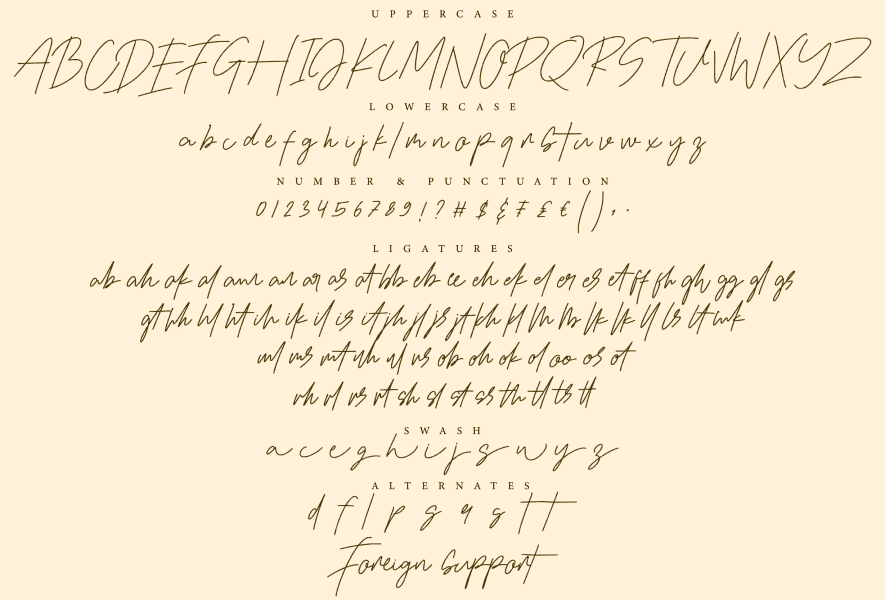 UPPERCASE
ABCDEFGHIJKLMNOPQRSTUVWXYZ
LOWERCASE
a b c d e f g h i j k l m n o p q r s t u v w x y z
NUMBER & PUNCTUATION
0 1 2 3 4 5 6 7 8 9 ! ? # $ & ₣ £ € ( ) , .
LIGATURES
ab ah ak al am an ar as at bb eb ee eh ek el er es et ff fh gh gg gl gs
gt hh hl ht ih ik il is it jh jl js jt kh kl lh lb lk lk ll ls lt mk
ml ms mt nh nl ns ob oh ok ol oo os ot
rh rl rs rt sh sl st ss th tl ts tt
SWASH
a c e g h i j s w y z
ALTERNATES
d f l p g q s t t
Foreign Support